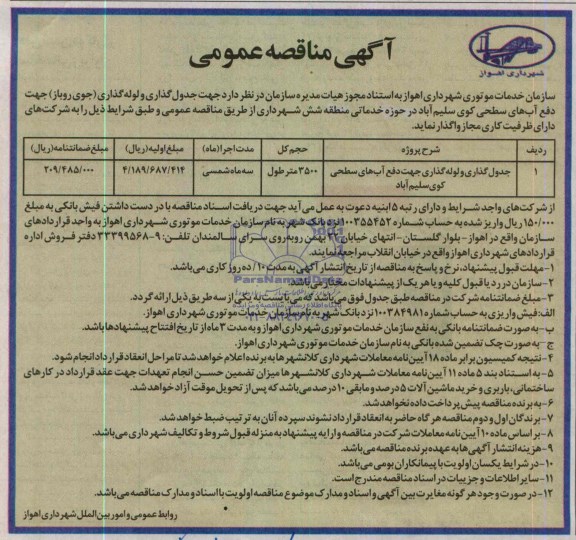 شهرداری اهواز
آگهی مناقصه عمومی
سازمان خدمات موتوری شهرداری اهواز به استناد مجوز هیات مدیره سازمان در نظر دارد جهت جدول گذاری و لوله گذاری (جوی روباز) جهت
دفع آب‌های سطحی کوی سلیم آباد در حوزه خدماتی منطقه شش شهرداری از طریق مناقصه عمومی و طبق شرایط ذیل را به شرکت‌های
دارای ظرفیت کاری مجاز واگذار نماید.
ردیف شرح پروژه حجم کل مدت اجرا (ماه) مبلغ اولیه (ریال) مبلغ ضمانتنامه (ریال)
۱ جدول گذاری و لوله گذاری جهت دفع آب‌های سطحی کوی سلیم آباد ۳۵۰۰ متر طول سه ماه شمسی ۴/۱۸۹/۶۸۷/۴۱۴ ۲۰۹/۴۸۵/۰۰۰
از شرکت‌های واجد شرایط و دارای رتبه ۵ ابنیه دعوت به عمل می آید جهت دریافت اسناد مناقصه با در دست داشتن فیش بانکی به مبلغ
۱۵۰/۰۰۰ ریال واریز شده به حساب شماره ۱۰۰۳۵۵۴۵۲ نزد بانک شهر به نام سازمان خدمات موتوری شهرداری اهواز به واحد قراردادهای
سازمان واقع در اهواز - بلوار گلستان - انتهای خیابان ۲۲ بهمن روبه روی سرای سالمندان تلفن: ۹-۳۳۳۹۹۵۶۸ دفتر فروش اداره
قراردادهای شهرداری اهواز واقع در خیابان انقلاب مراجعه نمایند.
۱- مهلت قبول پیشنهاد، نرخ و پاسخ به مناقصه از تاریخ انتشار آگهی به مدت ۱۰/ ده روز کاری می‌باشد.
۲- سازمان در رد یا قبول کلیه و یا هر یک از پیشنهادات مختار می‌باشد.
۳- مبلغ ضمانتنامه شرکت در مناقصه طبق جدول فوق می‌باشد که می‌بایست به یکی از سه طریق ذیل ارائه گردد.
الف: فیش واریزی به حساب شماره ۱۰۰۳۸۴۹۸۱ نزد بانک شهر به نام سازمان خدمات موتوری شهرداری اهواز.
ب- به صورت ضمانتنامه بانکی به نفع سازمان خدمات موتوری شهرداری اهواز و به مدت ۳ ماه از تاریخ افتتاح پیشنهادها باشد.
ج- به صورت چک تضمین شده بانکی به نام سازمان خدمات موتوری شهرداری اهواز.
۴- نتیجه کمیسیون برابر ماده ۱۸ آیین نامه معاملات شهرداری کلانشهرها به برنده اعلام خواهد شد تا مراحل انعقاد قرارداد انجام شود.
۵- به استناد بند ۵ ماده ۱۱ آیین نامه معاملات شهرداری کلانشهرها میزان تضمین حسن انجام تعهدات جهت عقد قرارداد در کارهای
ساختمانی، باربری و خرید ماشین آلات ۵ درصد و مابقی ۱۰ درصد می‌باشد که پس از تحویل موقت آزاد خواهد شد.
۶- به برنده مناقصه پیش پرداخت داده نخواهد شد.
۷- برندگان اول و دوم مناقصه هر گاه حاضر به انعقاد قرارداد نشوند سپرده آنان به ترتیب ضبط خواهد شد.
۸- بر اساس ماده ۱۰ آیین نامه معاملات شرکت در مناقصه و ارایه پیشنهاد به منزله قبول شروط و تکالیف شهرداری می‌باشد.
۹- هزینه انتشار آگهی ها به عهده برنده مناقصه می‌باشد.
۱۰- در شرایط یکسان اولویت با پیمانکاران بومی می‌باشد.
۱۱- سایر اطلاعات و جزییات در اسناد مناقصه مندرج است.
۱۲- در صورت وجود هر گونه مغایرت بین آگهی و اسناد و مدارک موضوع مناقصه اولویت با اسناد و مدارک مناقصه می‌باشد.
روابط عمومی و امور بین الملل شهرداری اهواز
ParsNamadData